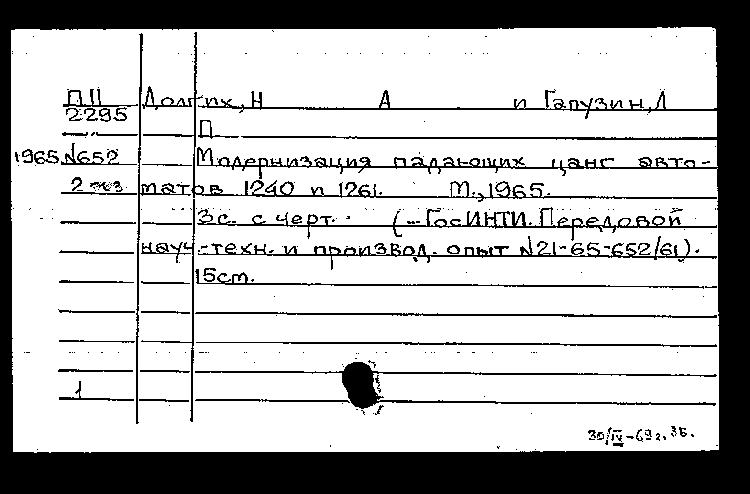 П11 Долгих, Н А и Гапузин, Л
2295 П
1965 N652 Модернизация падающих цанг авто-
2 экз матов 1240 п 1261. М., 1965.
3с. с черт. (-ГосИНТИ. Передовой
науч-техн. и производ. опыт N21-65-652/61).
15ст.
1
30/IV-69г. ЗБ.